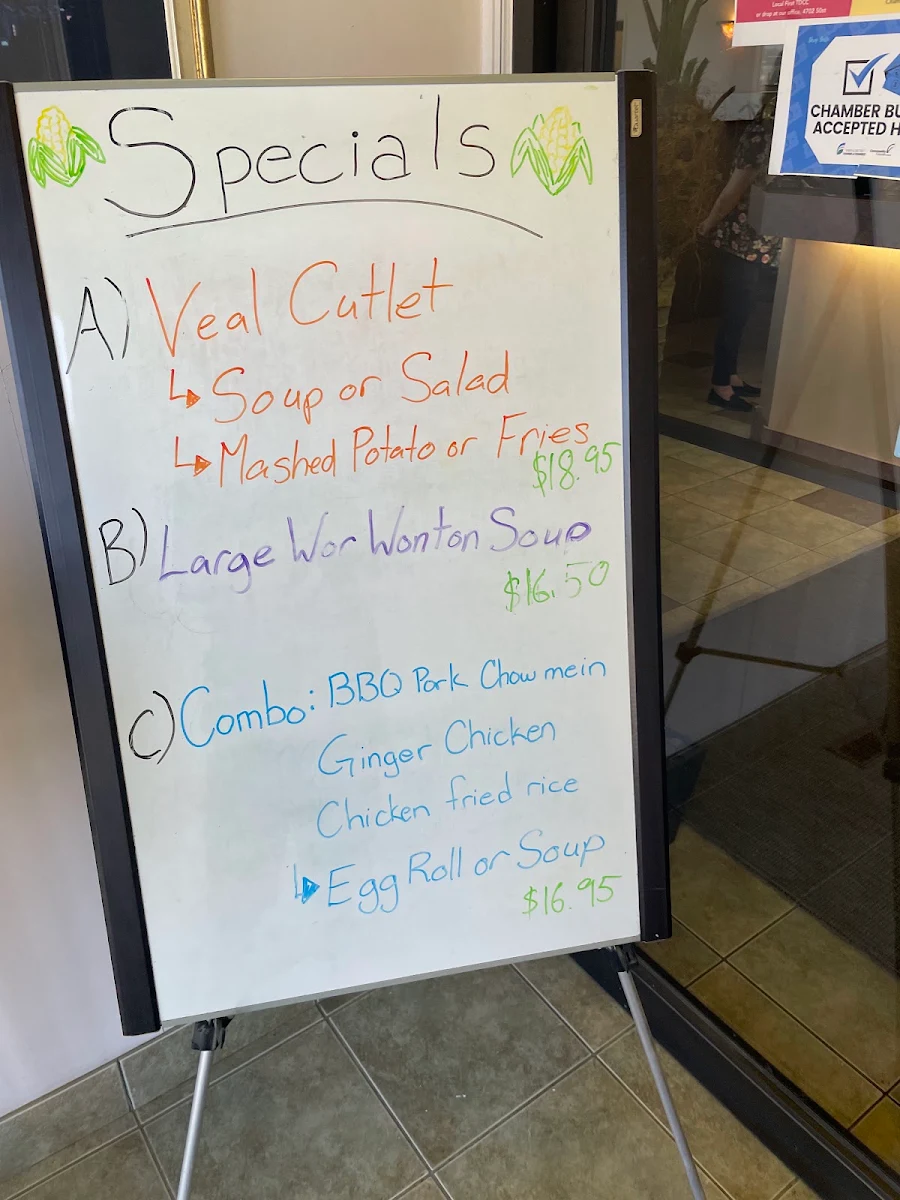 Specials
A) Veal Cutlet
↳ Soup or Salad
↳ Mashed Potato or Fries
$18.95
B) Large Wor Wonton Soup
$16.50
C) Combo: BBQ Pork Chow mein
Ginger Chicken
Chicken fried rice
↳ Egg Roll or Soup
$16.95
Local First TDCC
or drop at our office, 4702 50st
CHAMBER BU
ACCEPTED H